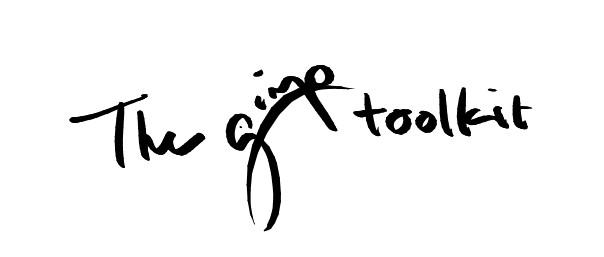 The gimp toolkit